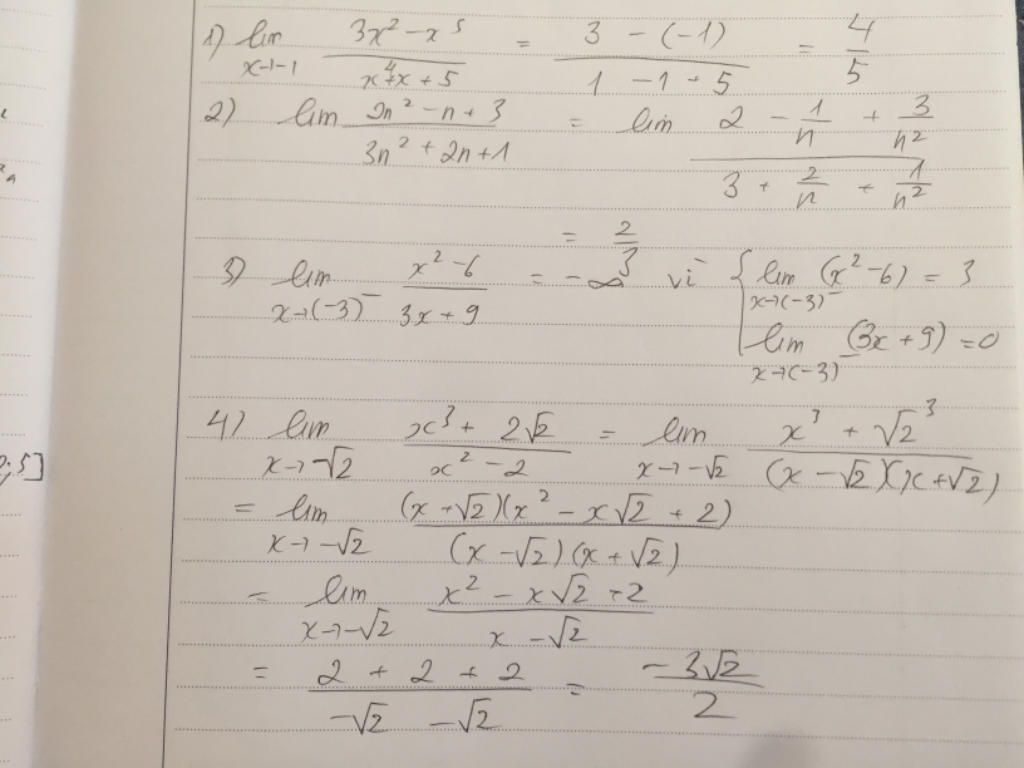 1) lim x→-1 (3x² - x⁵)/(x⁴ + x + 5) = (3 - (-1))/(1 - 1 + 5) = 4/5
2) lim (2n² - n + 3)/(3n² + 2n + 1) = lim (2 - 1/n + 3/n²)/(3 + 2/n + 1/n²)
= 2/3
3) lim x→(-3)⁻ (x² - 6)/(3x + 9) = -∞ vì { lim x→(-3)⁻ (x² - 6) = 3
lim x→(-3)⁻ (3x + 9) = 0
4) lim x→-√2 (x³ + 2√2)/(x² - 2) = lim x→-√2 (x³ + √2³)/((x - √2)(x + √2))
= lim x→-√2 ((x + √2)(x² - x√2 + 2))/((x - √2)(x + √2))
= lim x→-√2 (x² - x√2 + 2)/(x - √2)
= (2 + 2 + 2)/(-√2 - √2) = (-3√2)/2
;5]